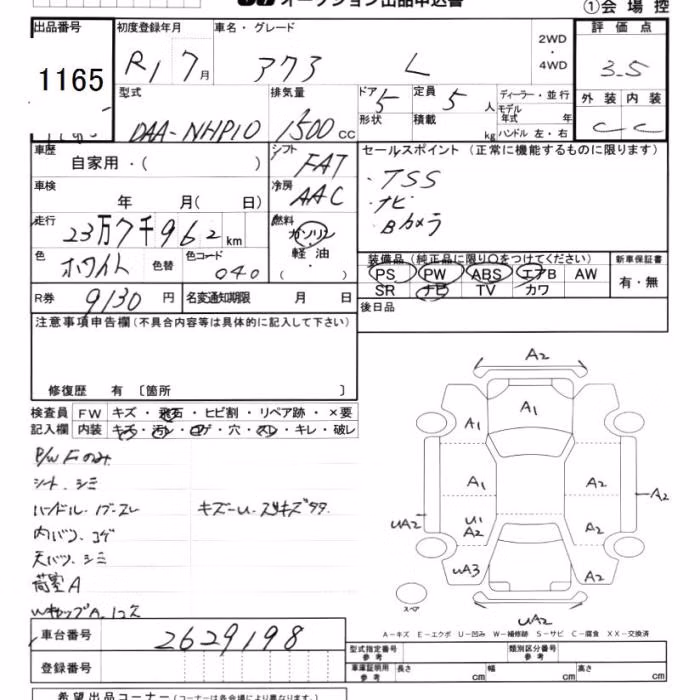 オークション出品申込書
①会場控
出品番号 初度登録年月 車名・グレード 2WD・4WD 評価点
1165 R1 7月 アクア L 3.5
型式 排気量 ドア 5 定員 5人 ディーラー・並行 外装 内装
DAA-NHP10 1500cc 形状 積載 kg モデル年式 年 C C
ハンドル 左・右
車歴 自家用・( ) シフト FAT セールスポイント (正常に機能するものに限ります)
車検 年 月( 日) 冷房 AAC ・TSS
・ナビ
走行 23万7千962km 燃料 ガソリン・軽油・( ) ・Bカメラ
色 ホワイト 色替 色コード 040
装備品 (純正品に限り○をつけてください) 新車保証書
PS PW ABS エアB AW 有・無
SR ナビ TV カワ
R券 9130円 名変通知期限 月 日
後日品
注意事項申告欄(不具合内容等は具体的に記入して下さい)
修復歴 有 〔箇所 〕
検査員 FW キズ・飛石・ヒビ割・リペア跡・×要
記入欄 内装 キズ・汚レ・コゲ・穴・スレ・キレ・破レ
P/W Fのみ
シート、シミ
ハンドル、
キズ~U、スリキズ
内バリ、コゲ
天バリ、シミ
荷室A
WキャップA、
A2
A1
A1
A1 A1
A2
UA2
U1
A2
A2
UA3 A2
スペア
UA2
A-キズ E-エクボ U-凹み W-補修跡 S-サビ C-腐食 XX-交換済
車台番号 2629198
登録番号
型式指定番号 参考 類別区分番号 参考
車庫証明用 参考 長さ cm 幅 cm 高さ cm
希望出品コーナー (コーナーは各会場により異なります。)